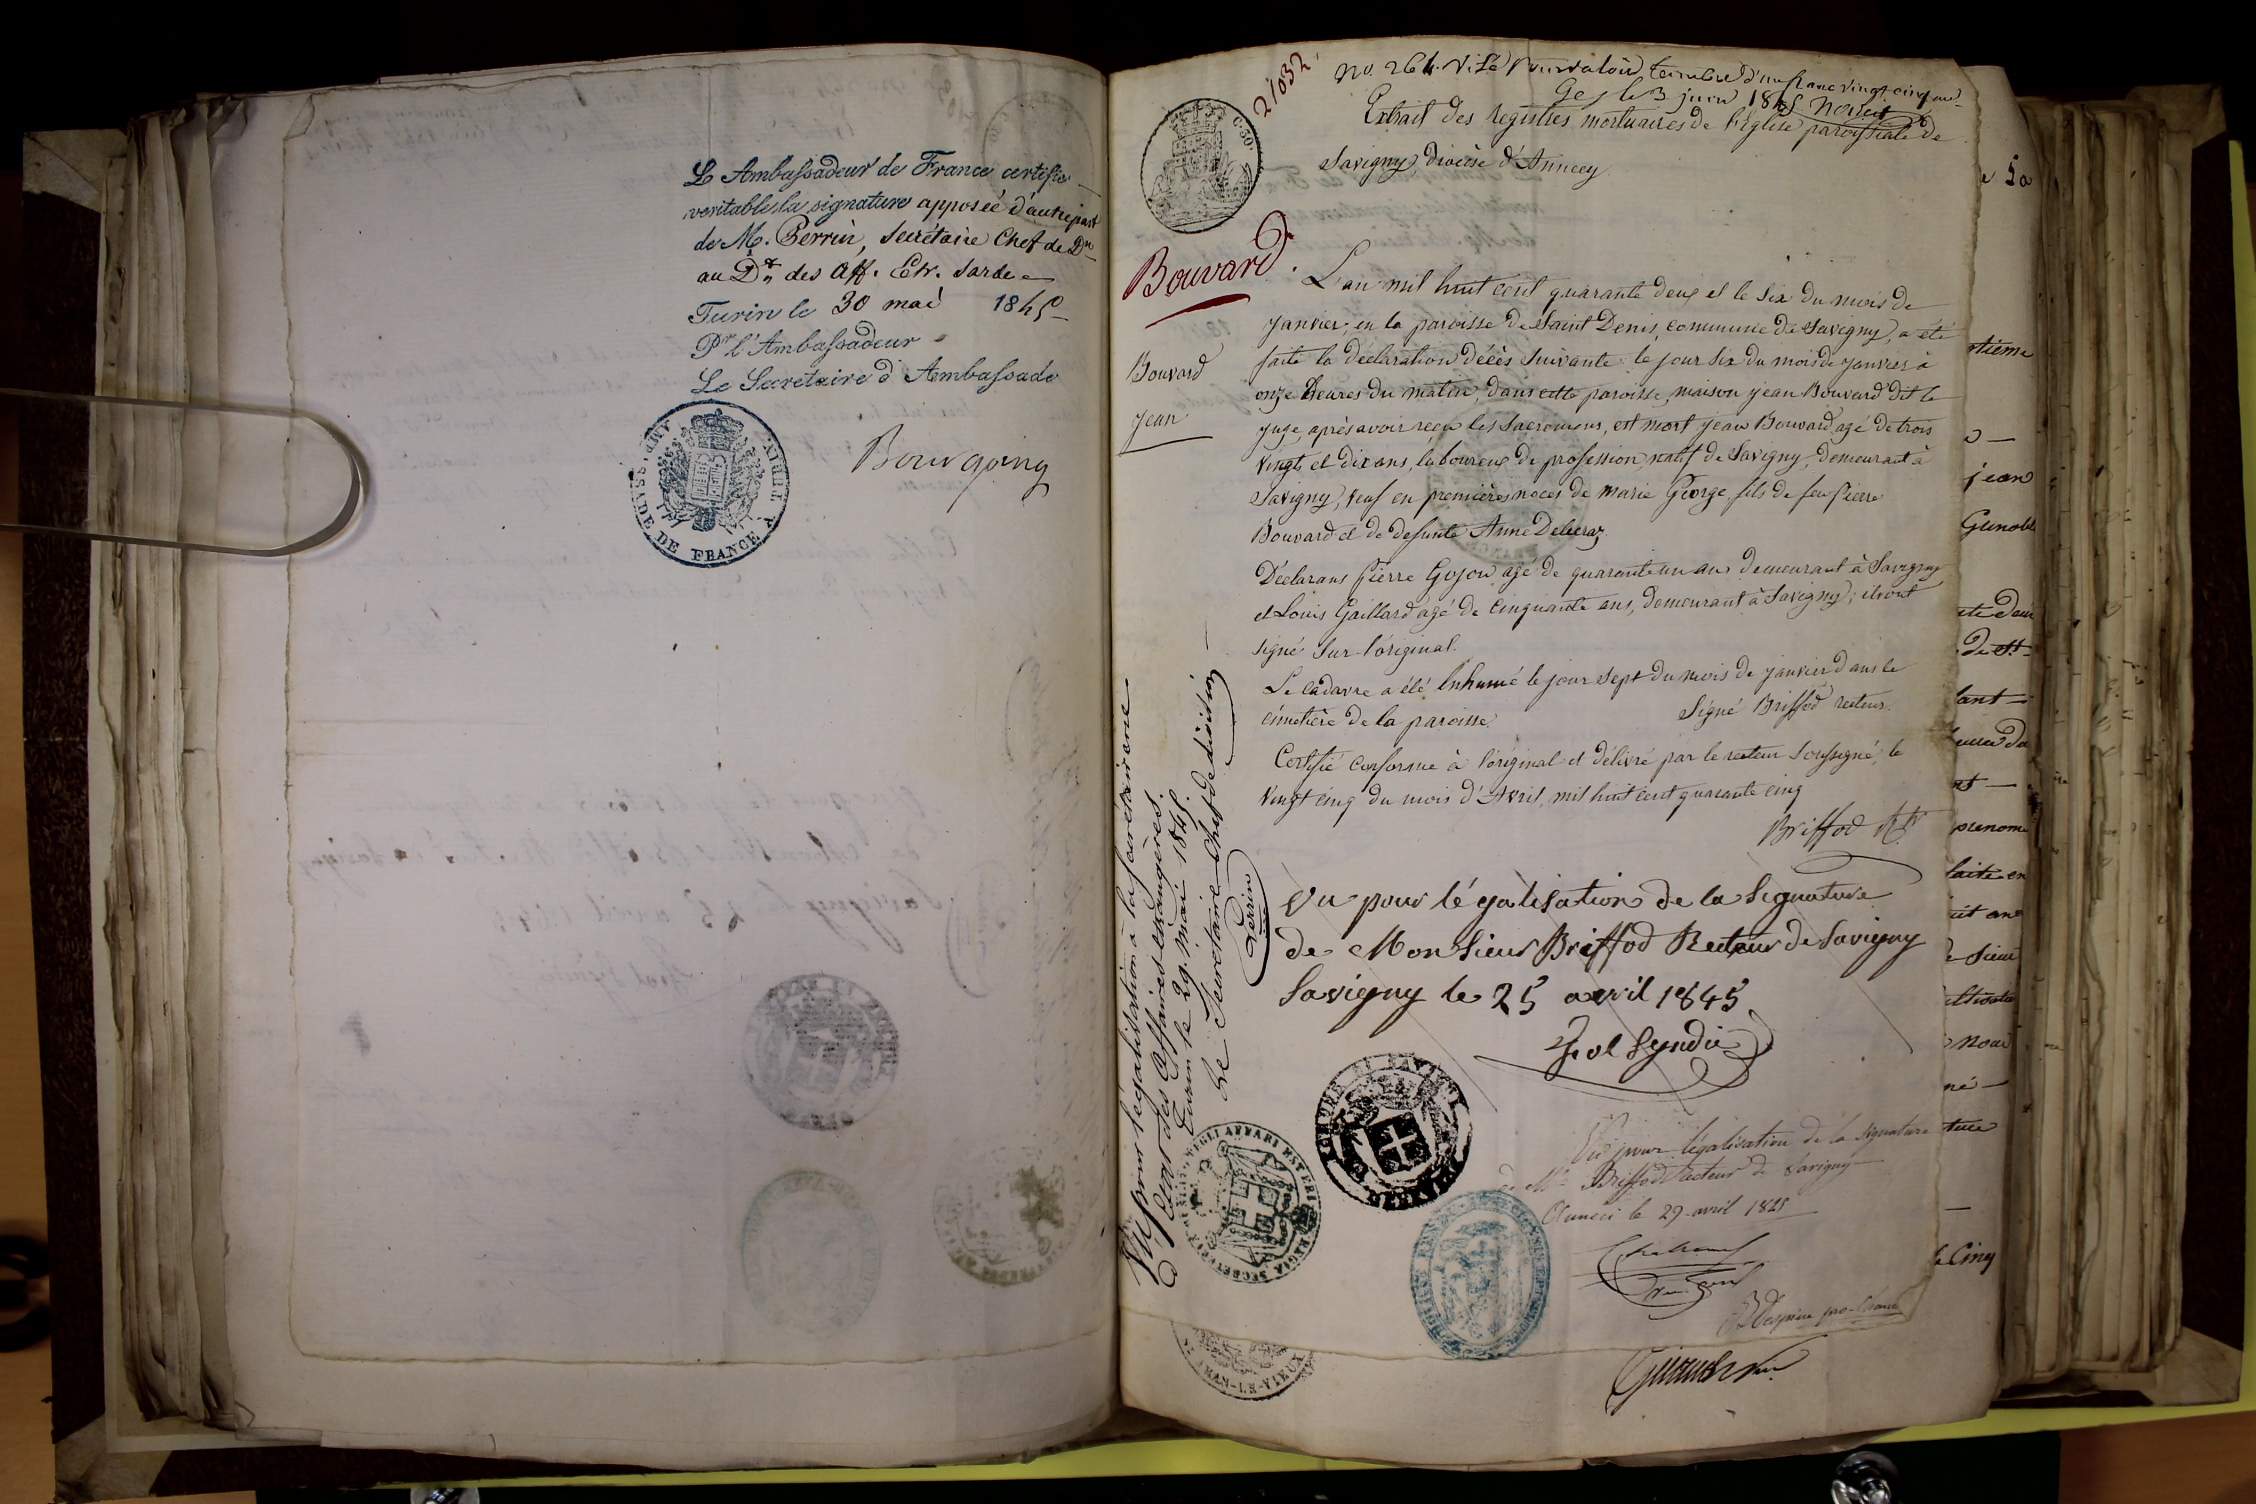 Le Ambassadeur de France certifie
veritable la signature apposée d'autre part
de M. Perrin, Secrétaire Chef de Don
au Dt des Aff. Etr. Sardes
Turin le 30 mai 1845
Pr l'Ambassadeur
Le Secretaire d'Ambassade
Bourgoing
AMBASSADE DE FRANCE A TURIN
21032.
No. 264. Visé pour valoir timbre d'un franc vingt cinq
Gex le 3 juin 1845
C. 50
Extrait des registres mortuaires de l'Eglise paroissiale de
Savigny, diocèse d'Annecy.
Bouvard.
L'an mil huit cent quarante deux et le six du mois de
janvier, en la paroisse de Saint Denis, commune de Savigny, a été
faite la déclaration décès suivante: le jour six du mois de janvier à
onze heures du matin, dans cette paroisse, maison jean Bouvard dit le
juge, après avoir reçu les sacremens, est mort jean Bouvard, agé de trois
vingts et dix ans, laboureur de profession, natif de Savigny, demeurant à
Savigny, veuf en premières noces de marie George, fils de feu Pierre
Bouvard et de defunte Anne Delecraz.
Bouvard
jean
Déclarans Pierre Gojon agé de quarante un ans demeurant à Savigny
et Louis Gaillard agé de cinquante ans, demeurant à Savigny; ils ont
signé sur l'original.
Le cadavre a été inhumé le jour sept du mois de janvier dans le
cimetière de la paroisse. Signé Briffod recteur.
Certifié conforme à l'original et délivré par le recteur soussigné, le
vingt cinq du mois d'Avril, mil huit cent quarante cinq
Briffod Rr
Vu pour légalisation de la Signature
de Monsieur Briffod Recteur de Savigny
Savigny le 25 avril 1845
Syndic
Vu pour légalisation de la signature
de Mr Briffod Recteur de Savigny
Anneci le 29 avril 1845
Vu pour légalisation à la Secrétairerie
d'Etat des Affaires étrangères.
Turin le 29. mai 1845.
Le Secrétaire Chef de division
Perrin
DEGLI AFFARI ESTERI REGIA SEGRETERIA
e 50
jean
prenom
le Cinq